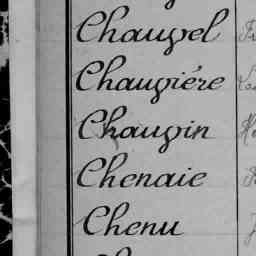 Chauvel
Chauvière
Chauvin
Chenaie
Chenu